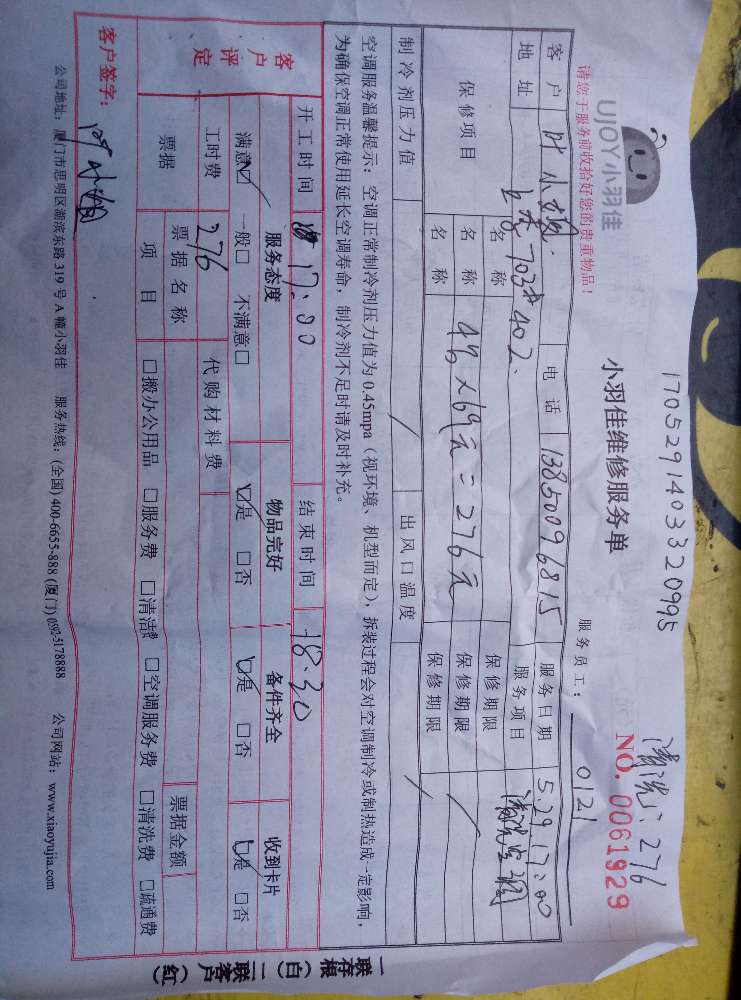 1705291403320995
清洗：276
UJOY小羽佳
小羽佳维修服务单
NO. 0061929
请您于服务前收拾好您的贵重物品！
服务员工： 0121
客户 叶小姐 电话 13850096815 服务日期 5.29 17:00
地址 703#402 服务项目 清洗空调
保修项目 名称 保修期限
名称 4台×69元=276元 保修期限
名称 保修期限
制冷剂压力值 出风口温度
空调服务温馨提示：空调正常制冷剂压力值为0.45mpa（视环境、机型而定），拆装过程会对空调制冷或制热造成一定影响，
为确保空调正常使用延长空调寿命，制冷剂不足时请及时补充。
开工时间 17:00 结束时间 18:30
客户评定 服务态度 物品完好 备件齐全 收到卡片
满意☑ 一般□ 不满意□ ☑是 □否 ☑是 □否 ☑是 □否
工时费 276 代购材料费
票据 票据名称 票据金额
项目 □搬办公用品 □服务费 □清洁费 □空调服务费 □清洗费 □疏通费
客户签字： 叶小姐
公司地址：厦门市思明区湖滨东路319号A幢小羽佳 服务热线：(全国) 400-6655-888 (厦门) 0592-5178888 公司网站：www.xiaoyujia.com
一联存根（白）二联客户（红）